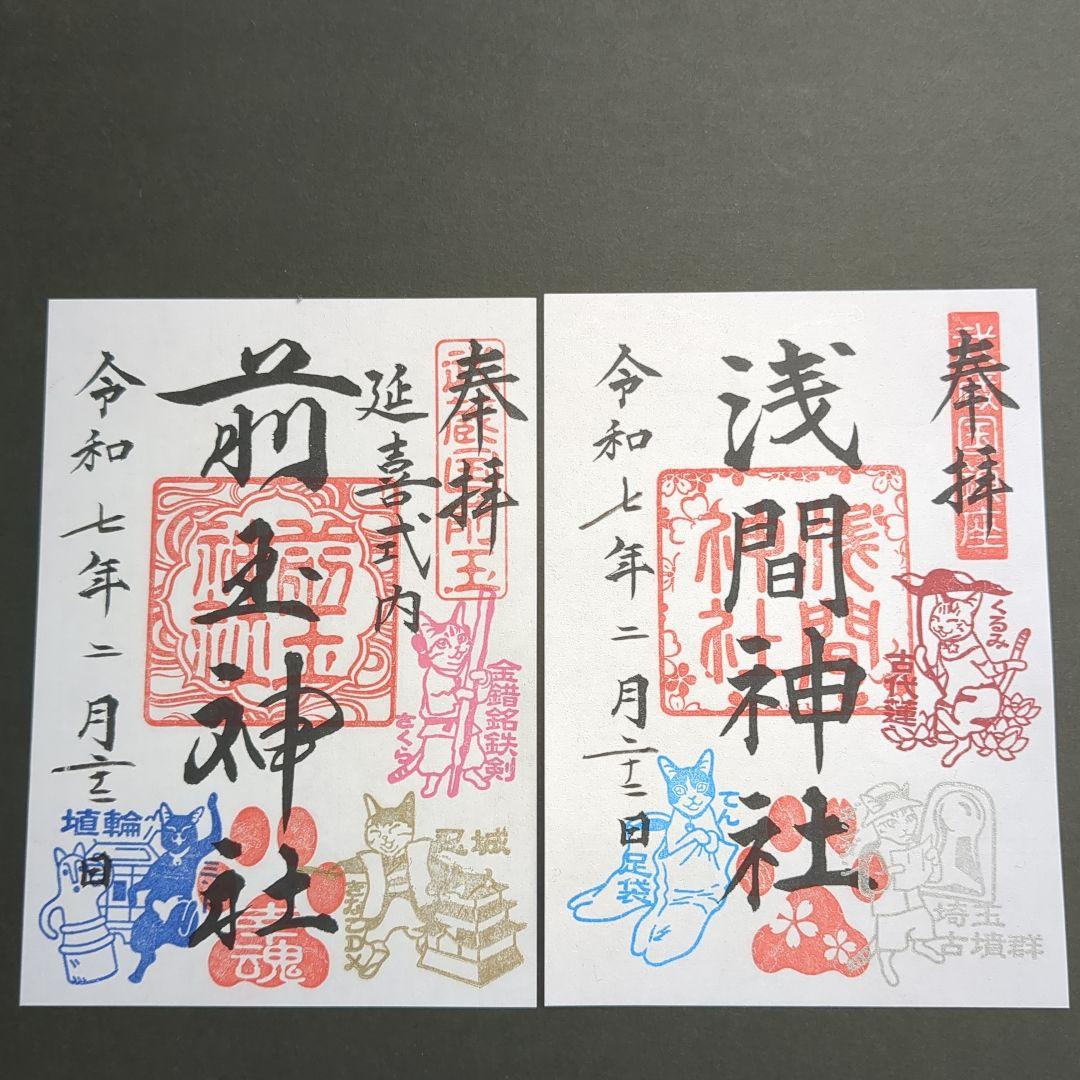 奉拝
延喜式内
前玉神社
令和七年二月二十二日
前玉神社
金錯銘鉄剣
さくら
埴輪
忍城
幸魂
奉拝
浅間神社
令和七年二月二十二日
浅間神社
くるみ
古代蓮
てん
足袋
埼玉
古墳群